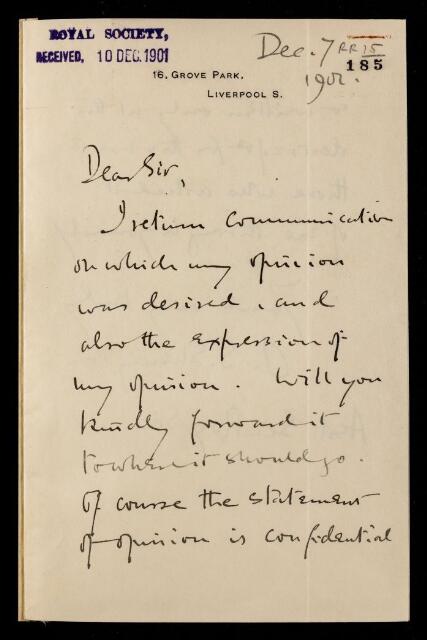 ROYAL SOCIETY,
RECEIVED, 10 DEC. 1901
Dec. 7
1901.
RR 15
185
16, GROVE PARK,
LIVERPOOL S.
Dear Sir,
I return Communication
on which my opinion
was desired, and
also the expression of
my opinion. Will you
kindly forward it
to where it should go.
Of course the statement
of opinion is confidential